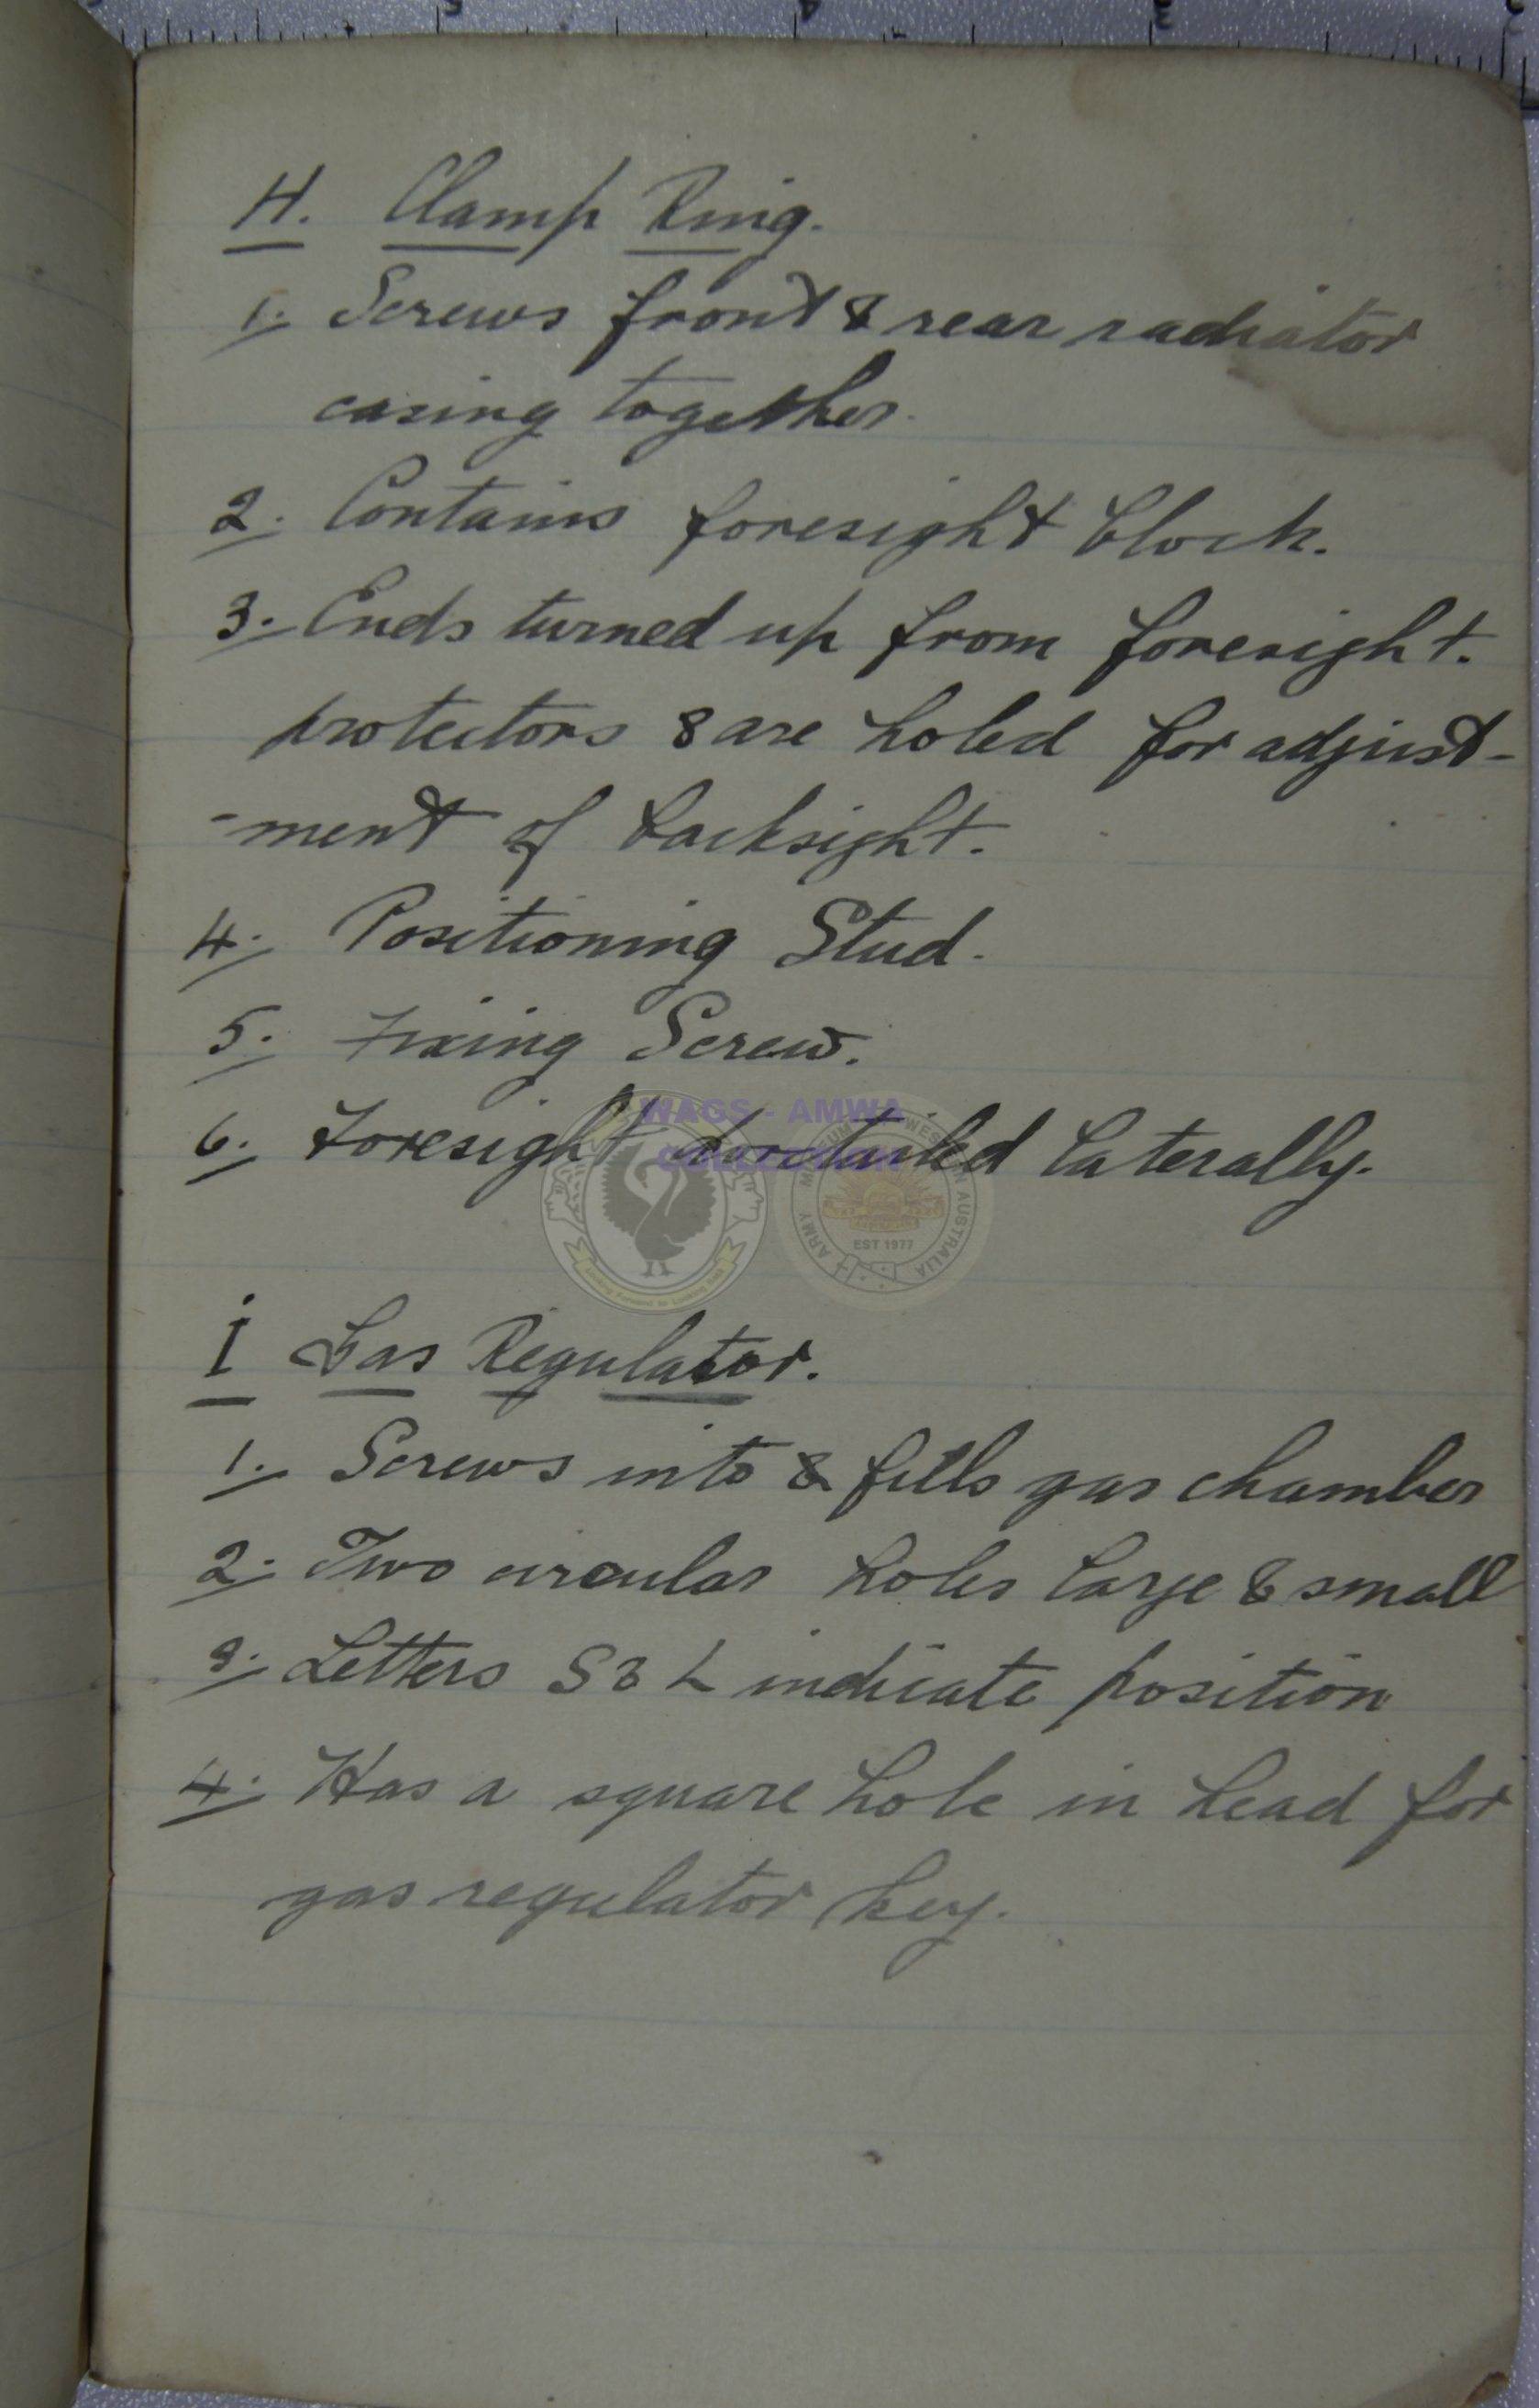 H. Clamp Ring.
1. Screws front & rear radiator
casing together.
2. Contains foresight block.
3. Ends turned up from foresight.
protectors & are holed for adjust-
-ment of backsight.
4. Positioning Stud.
5. Fixing Screw.
6. Foresight dovetailed laterally.
WAGS - AMWA
COLLECTION
ARMY MUSEUM WESTERN AUSTRALIA
EST 1977
I Gas Regulator.
1. Screws into & fills gas chamber
2. Two circular holes large & small
3. Letters S & L indicate position
4. Has a square hole in head for
gas regulator key.